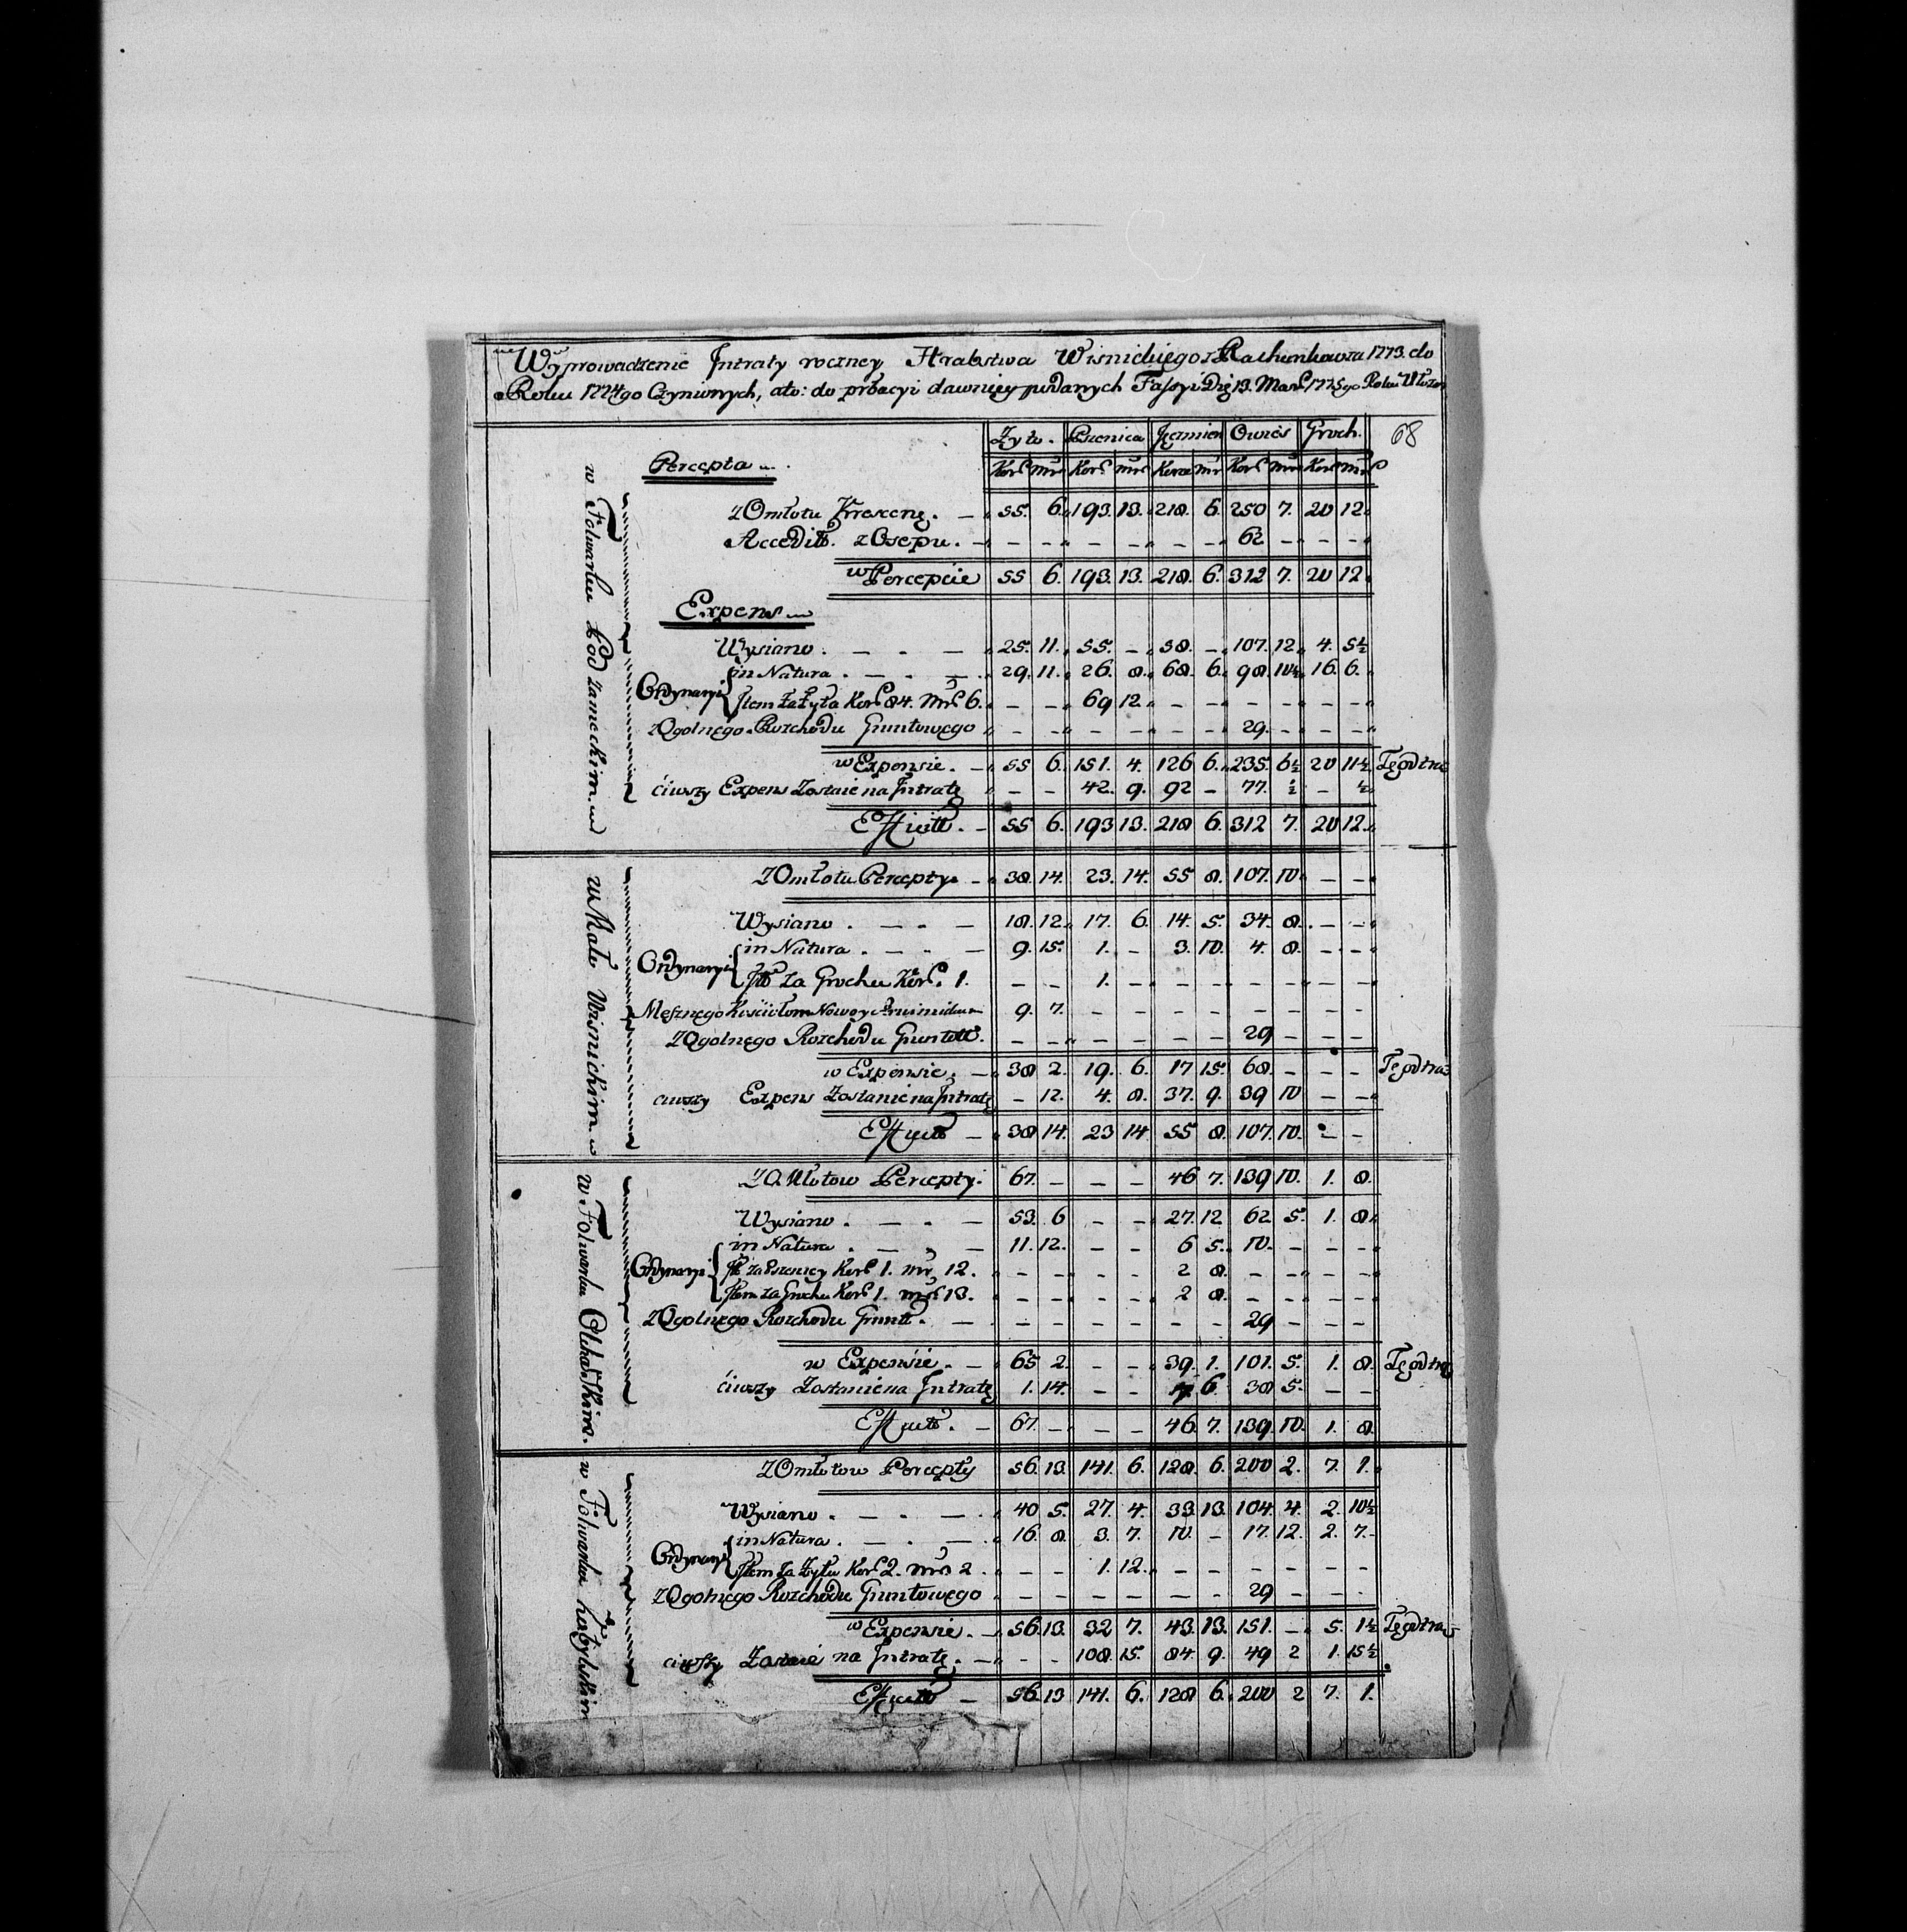 Wyprowadzenie Jntraty roczney Hrabstwa Wisnickiego z Rachunkow za 1773. do
Roku 1774go Czynionych, ato: do próbacyi dawniey podanych Fassyi Die 13. Mar. 1775go Roku
Zyto. Pszenica Jęzmien Owies Groch. 68
Kor. mr Kor. mr Korce mr Kor. mr Kor. mr
w Folwarku Pod zameckim.
Percepta
z Omłotu Krescenc. — 55. 6. 193. 13. 218. 6. 250 7. 20 12.
Accedit. z Osepu. — – – – – – – 62 – – –
w Percepcie 55 6. 193. 13. 218. 6. 312 7. 20 12.
Expens
Wysiano. — - — 25. 11. 55. – 58. – 107. 12. 4. 5½
Ordynaryi
in Natura. — - — 29. 11. 26. 8. 68. 6. 98. 10½ 16. 6.
Jtem za Zyta Kor. 84. Mr. 6. – – 69 12. – – – – – –
z Ogolnego Rozchodu Gruntowego – – – – – – 29. – – –
w Expensie. — 55 6. 151. 4. 126 6. 235. 6½ 20 11½ Tę odtrą
ciwszy Expens Zostaie na Jntratę – – 42. 9. 92 – 77. ½ – ½
Efficit. — 55 6. 193 13. 218 6. 312 7. 20 12.
Wisnickim
z Omłotu Percepty. — 38. 14. 23. 14. 55 8. 107. 10. – –
Wysiano. — - — 18. 12. 17. 6. 14. 5. 34. 8. – –
Ordynaryi
in Natura. — - — 9. 15. 1. – 3. 10. 4. 8. – –
Jt za Grochu Kor. 1. – – 1. – – – – – – –
Mesznego Kosciołom 9. 7. – – – – – – – –
z Ogolnego Rozchodu Gruntow. – – – – – – 29 – – –
w Expensie. — 38 2. 19. 6. 17 15. 68. – – – Tę odtrą
ciwszy Expens Zostanie na Jntratę – 12. 4. 8. 37. 9. 39 10 – –
Efficit — 38 14. 23 14 55 8. 107. 10. – –
w Folwarku
z Omłotow Percepty. 67. – – – 46 7. 139 10. 1. 8.
Wysiano. — - — 53. 6 – – 27. 12 62 5. 1. 8.
Ordynaryi
in Natura. — - — 11. 12. – – 6 5. 10. – – –
Jt za Pszenicy Kor. 1. mr. 12. – – – – 2 8. – – – –
Jtem za Grochu Kor. 1. mr. 13. – – – – 2 8. – – – –
z Ogolnego Rozchodu Grunt. — – – – – – – 29 – – –
w Expensie. — 65 2. – – 39. 1. 101. 5. 1. 8. Tę odtrą
ciwszy Zostanie na Jntratę 1. 14. – – 7 6. 38 5. – –
Efficit. — 67. – – – 46. 7. 139. 10. 1. 8
w Folwarku
z Omłotow Percepty 56. 13. 141. 6. 128. 6. 200 2. 7. 1.
Wysiano. — - — 40 5. 27. 4. 33. 13. 104. 4. 2. 10½
Ordynaryi
in Natura. — - — 16 8. 3. 7. 10. – 17. 12. 2. 7.
Jtem za Zyta Kor. 2. mr. 2. – – 1. 12. – – – – – –
z Ogolnego Rozchodu Gruntowego – – – – – – 29 – – –
w Expensie. — 56. 13. 32 7. 43. 13. 151. – 5. 1½ Tę odtrą
ciwszy Zostaie na Jntratę. — – – 108. 15. 84. 9. 49 2 1. 15½
Efficit — 56. 13 141. 6. 128 6. 200 2 7. 1.